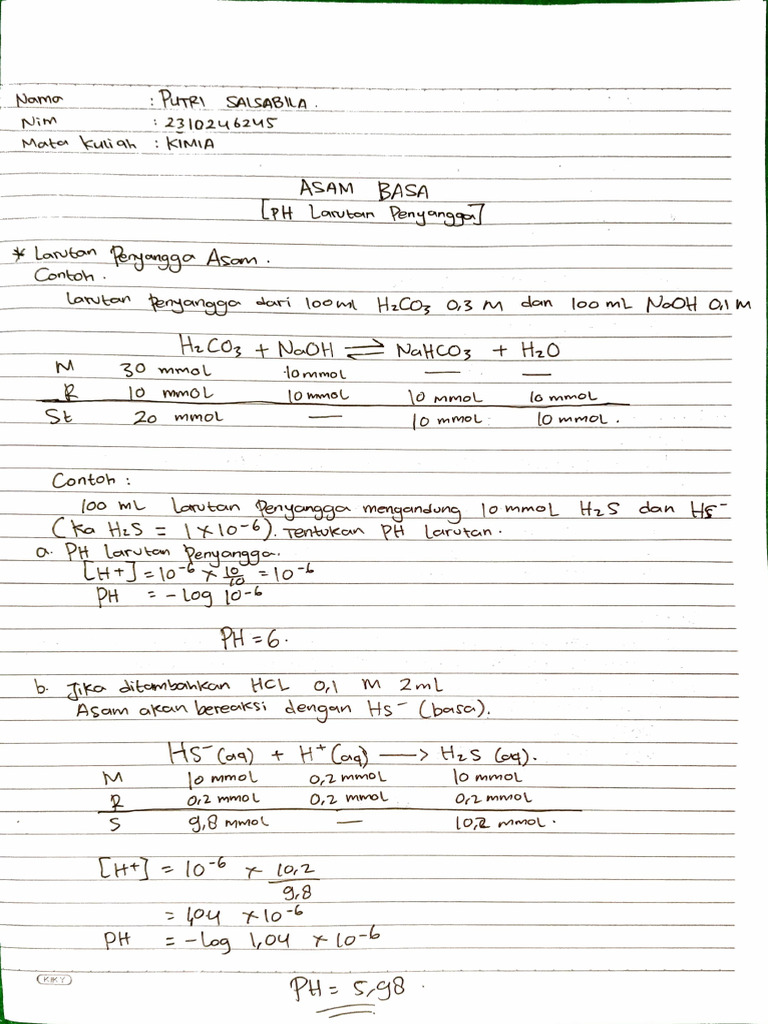 Nama : PUTRI SALSABILA.
Nim : 2310246245
Mata kuliah : KIMIA
ASAM BASA
[PH Larutan Penyangga]
* Larutan Penyangga Asam.
Contoh.
Larutan penyangga dari 100 ml H₂CO₃ 0,3 M dan 100 mL NaOH 0,1 M
H₂CO₃ + NaOH ⇌ NaHCO₃ + H₂O
M 30 mmol 10 mmol — —
R 10 mmol 10 mmol 10 mmol 10 mmol
St 20 mmol — 10 mmol 10 mmol.
Contoh :
100 mL larutan penyangga mengandung 10 mmol H₂S dan HS⁻
(Ka H₂S = 1 × 10⁻⁶). Tentukan PH larutan.
a. PH larutan penyangga.
[H+] = 10⁻⁶ × 10/10 = 10⁻⁶
PH = - log 10⁻⁶
PH = 6.
b. Jika ditambahkan HCL 0,1 M 2mL
Asam akan bereaksi dengan HS⁻ (basa).
HS⁻(aq) + H⁺(aq) → H₂S (aq).
M 10 mmol 0,2 mmol 10 mmol
R 0,2 mmol 0,2 mmol 0,2 mmol
S 9,8 mmol — 10,2 mmol.
[H+] = 10⁻⁶ × 10,2/9,8
= 1,04 × 10⁻⁶
PH = - log 1,04 × 10⁻⁶
PH = 5,98.
KIKY